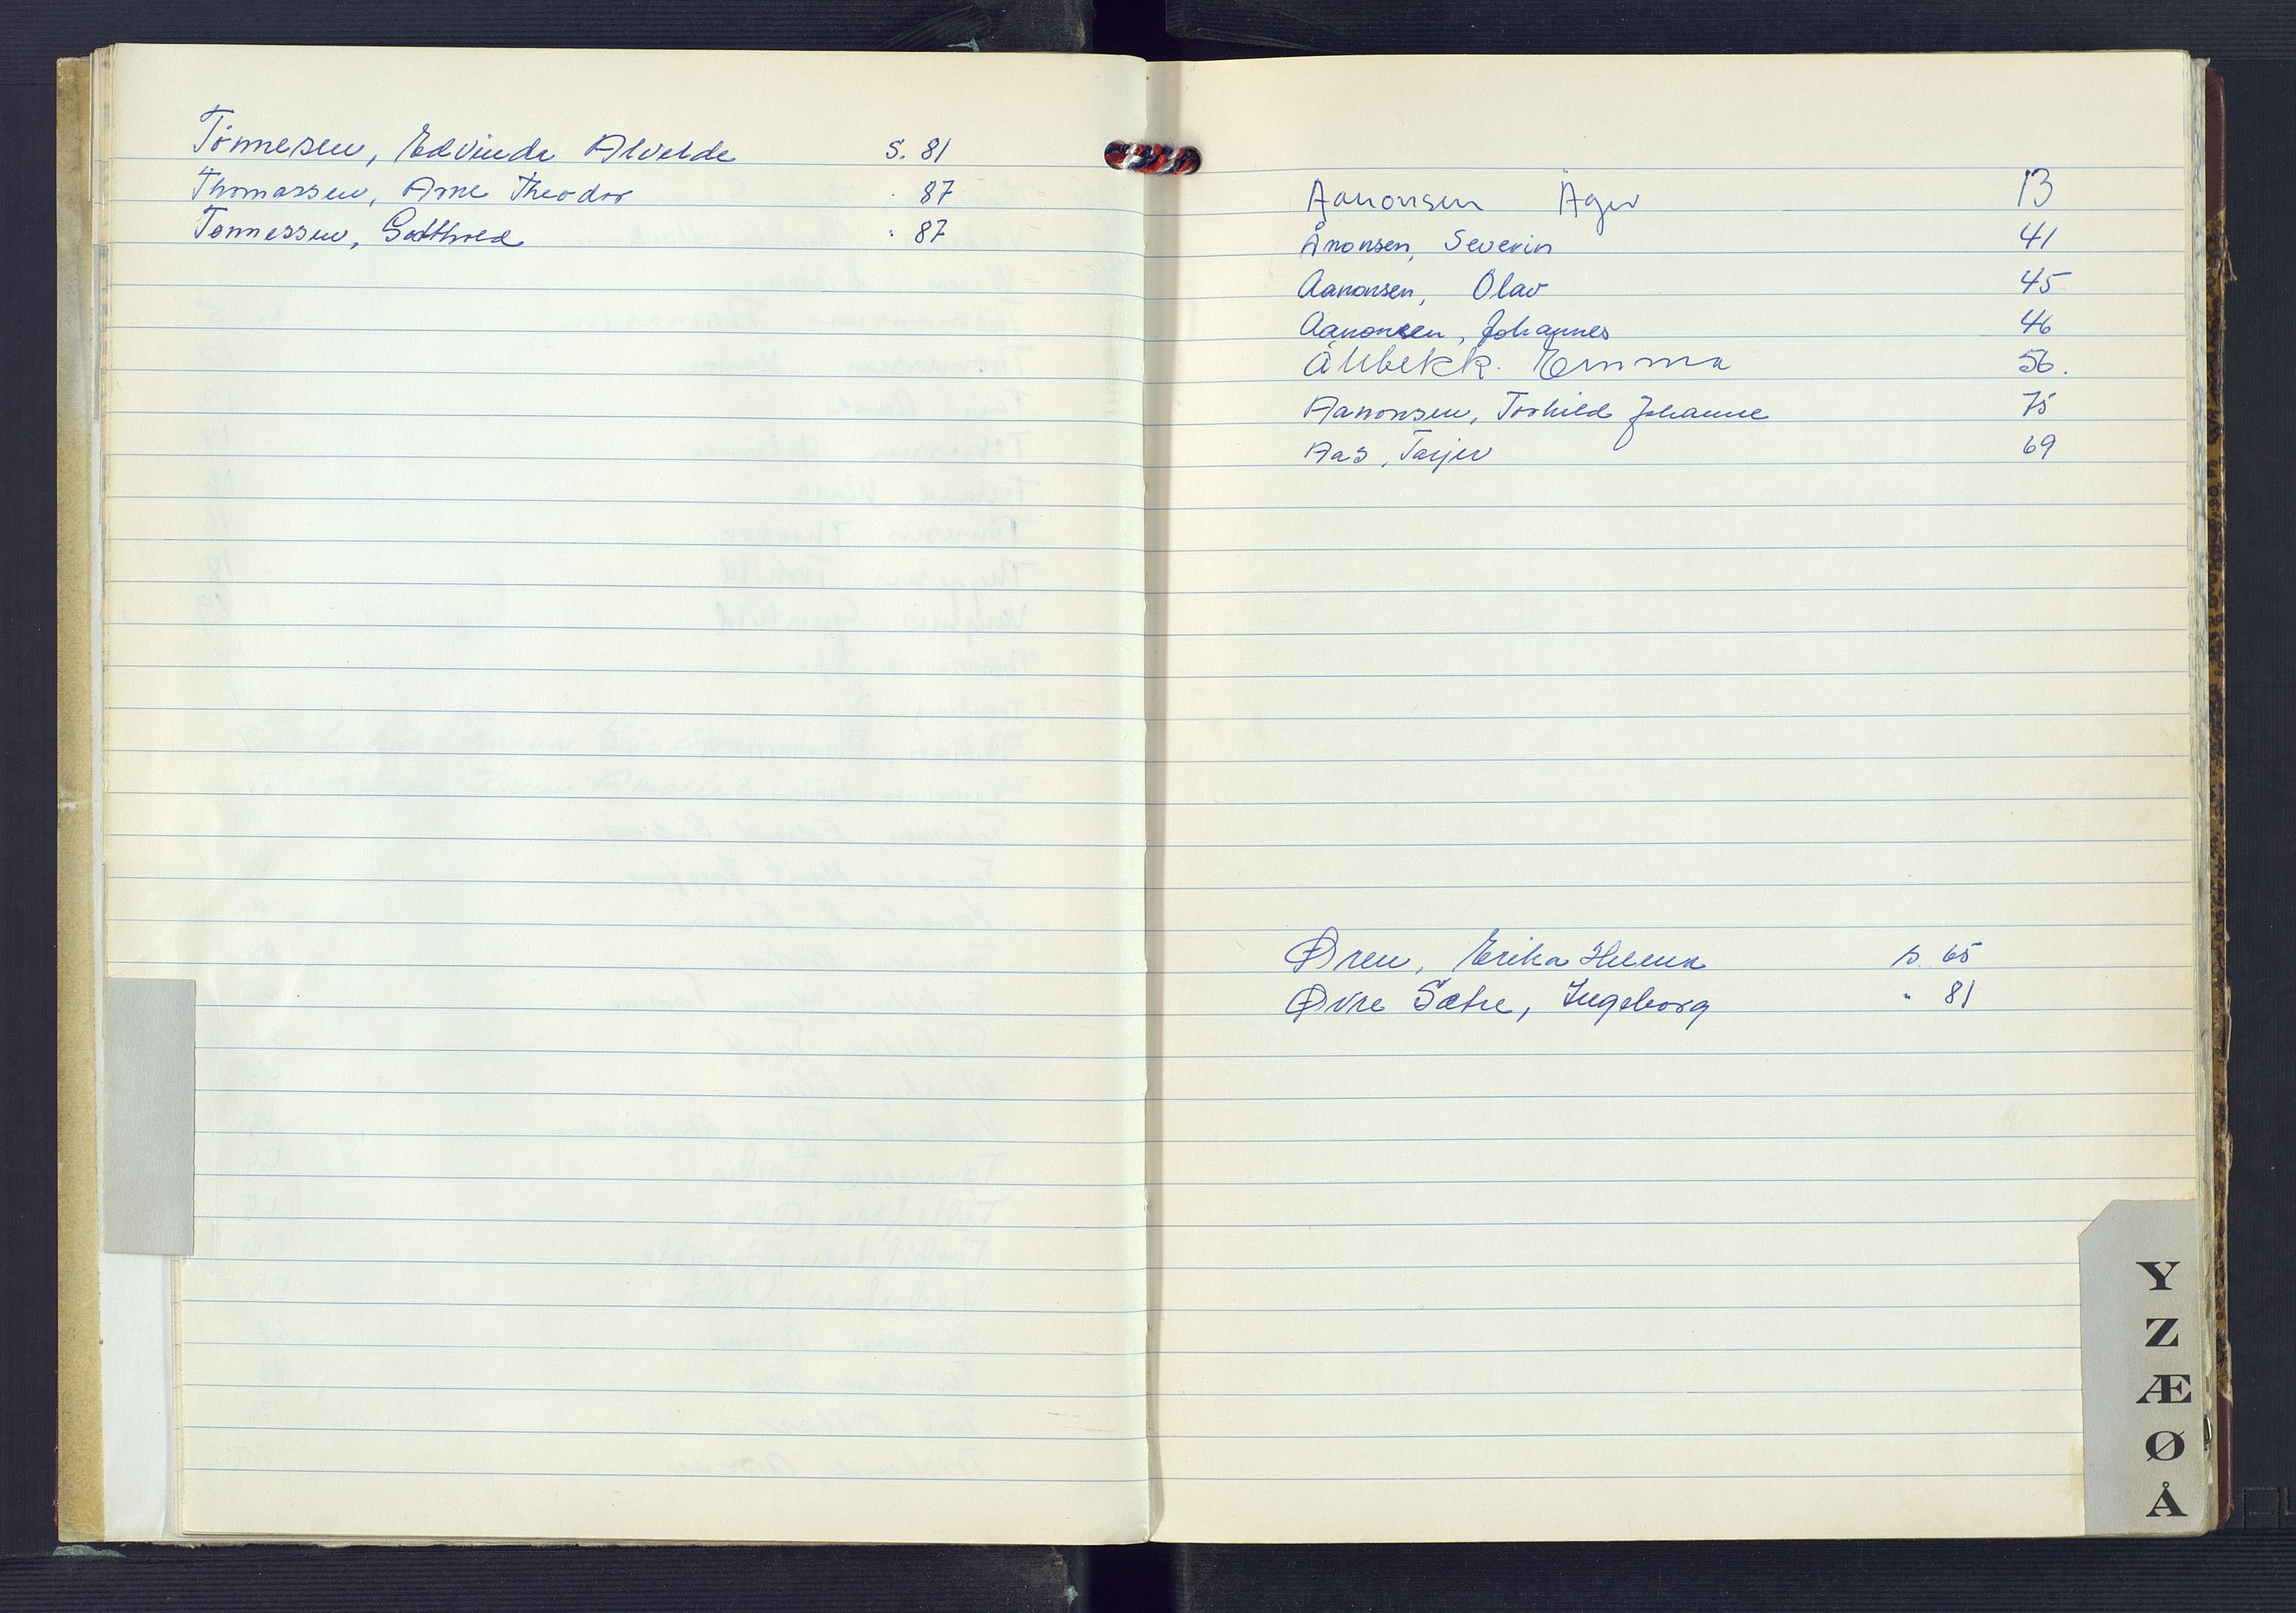 Tönnesen, Edvinde Alvelde s. 81
Thomassen, Arne Theodor " 87
Tønnessen, Gotthred " 87
Aanonsen Åger 13
Ånonsen, Severin 41
Aanonsen, Olav 45
Aanonsen, Johannes 46
Ållbekk. Emma 56.
Aanonsen, Torhild Johanne 75
Aas, Tarjei 69
Øren, Erika Helena s. 65
Øvre Sætre, Ingeborg " 81
Y
Z
Æ
Ø
Å